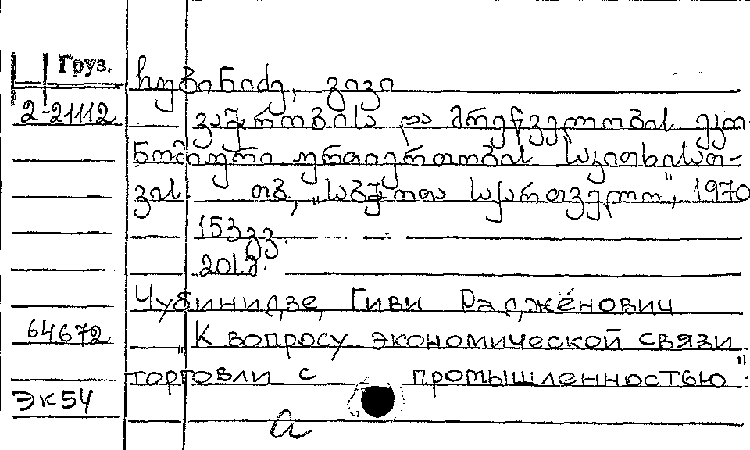 Груз.
ჩუბინიძე, გივი
2-21112
ვაჭრობისა და მრეწველობის ეკო-
ნომიური ურთიერთობის საკითხისათ-
ვის. თბ., "საბჭოთა საქართველო", 1970
153 გვ.
Чубинидзе, Гиви Раджёнович
64672
"К вопросу экономической связи
торговли с промышленностью"
Эк54
a